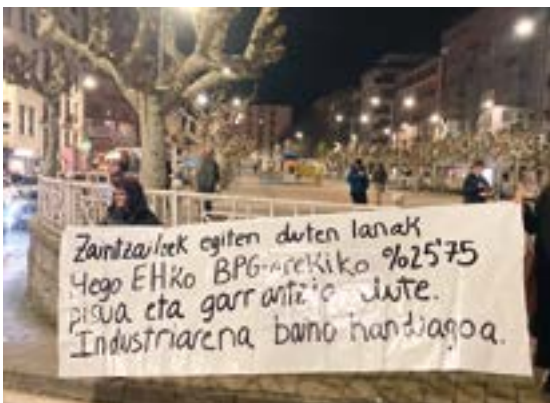 Zaintzaileek egiten duten lanak
Hego EHko BPG-arekiko %25'75
pisua eta garrantzia dute.
Industriarena baino handiagoa.